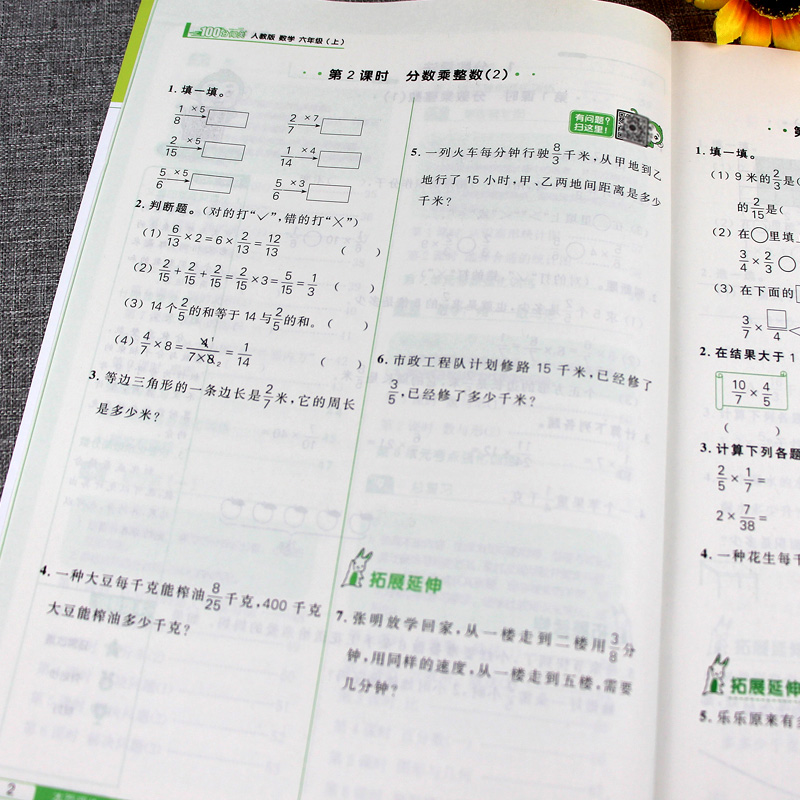 人教版 数学 六年级(上)
第2课时 分数乘整数(2)
1. 填一填。
1/8 ×5→ 2/7 ×7→
2/15 ×5→ 1/14 ×4→
5/6 ×5→ 5/6 ×3→
2. 判断题。(对的打“✓”,错的打“×”)
(1) 6/13×2=6×2/13=12/13 ( )
(2) 2/15+2/15+2/15=2/15×3=5/15=1/3 ( )
(3) 14个2/5的和等于14与2/5的和。( )
(4) 4/7×8=4̸¹/7×8̸₂=1/14 ( )
3. 等边三角形的一条边长是2/7米,它的周长
是多少米?
4. 一种大豆每千克能榨油8/25千克,400千克
大豆能榨油多少千克?
2
有问题?
扫这里!
5. 一列火车每分钟行驶8/3千米,从甲地到乙
地行了15小时,甲、乙两地间距离是多少
千米?
6. 市政工程队计划修路15千米,已经修了
3/5,已经修了多少千米?
拓展延伸
7. 张明放学回家,从一楼走到二楼用3/8分
钟,用同样的速度,从一楼走到五楼,需要
几分钟?
1. 填一填。
(1) 9米的2/3是(
的2/15是(
(2) 在○里填
3/4×2/3○
(3) 在下面的
3/7×□/4
2. 在结果大于1
10/7×4/5
( )
3. 计算下列各题
2/5×1/7=
2×7/38=
4. 一种花生每千
拓展延伸
5. 乐乐原来有